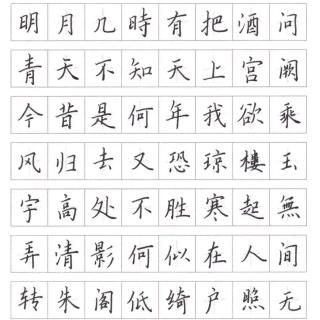 明月几時有把酒问
青天不知天上宫阙
今昔是何年我欲乘
风归去又恐琼楼玉
宇高处不胜寒起無
弄清影何似在人间
转朱阁低绮户照无